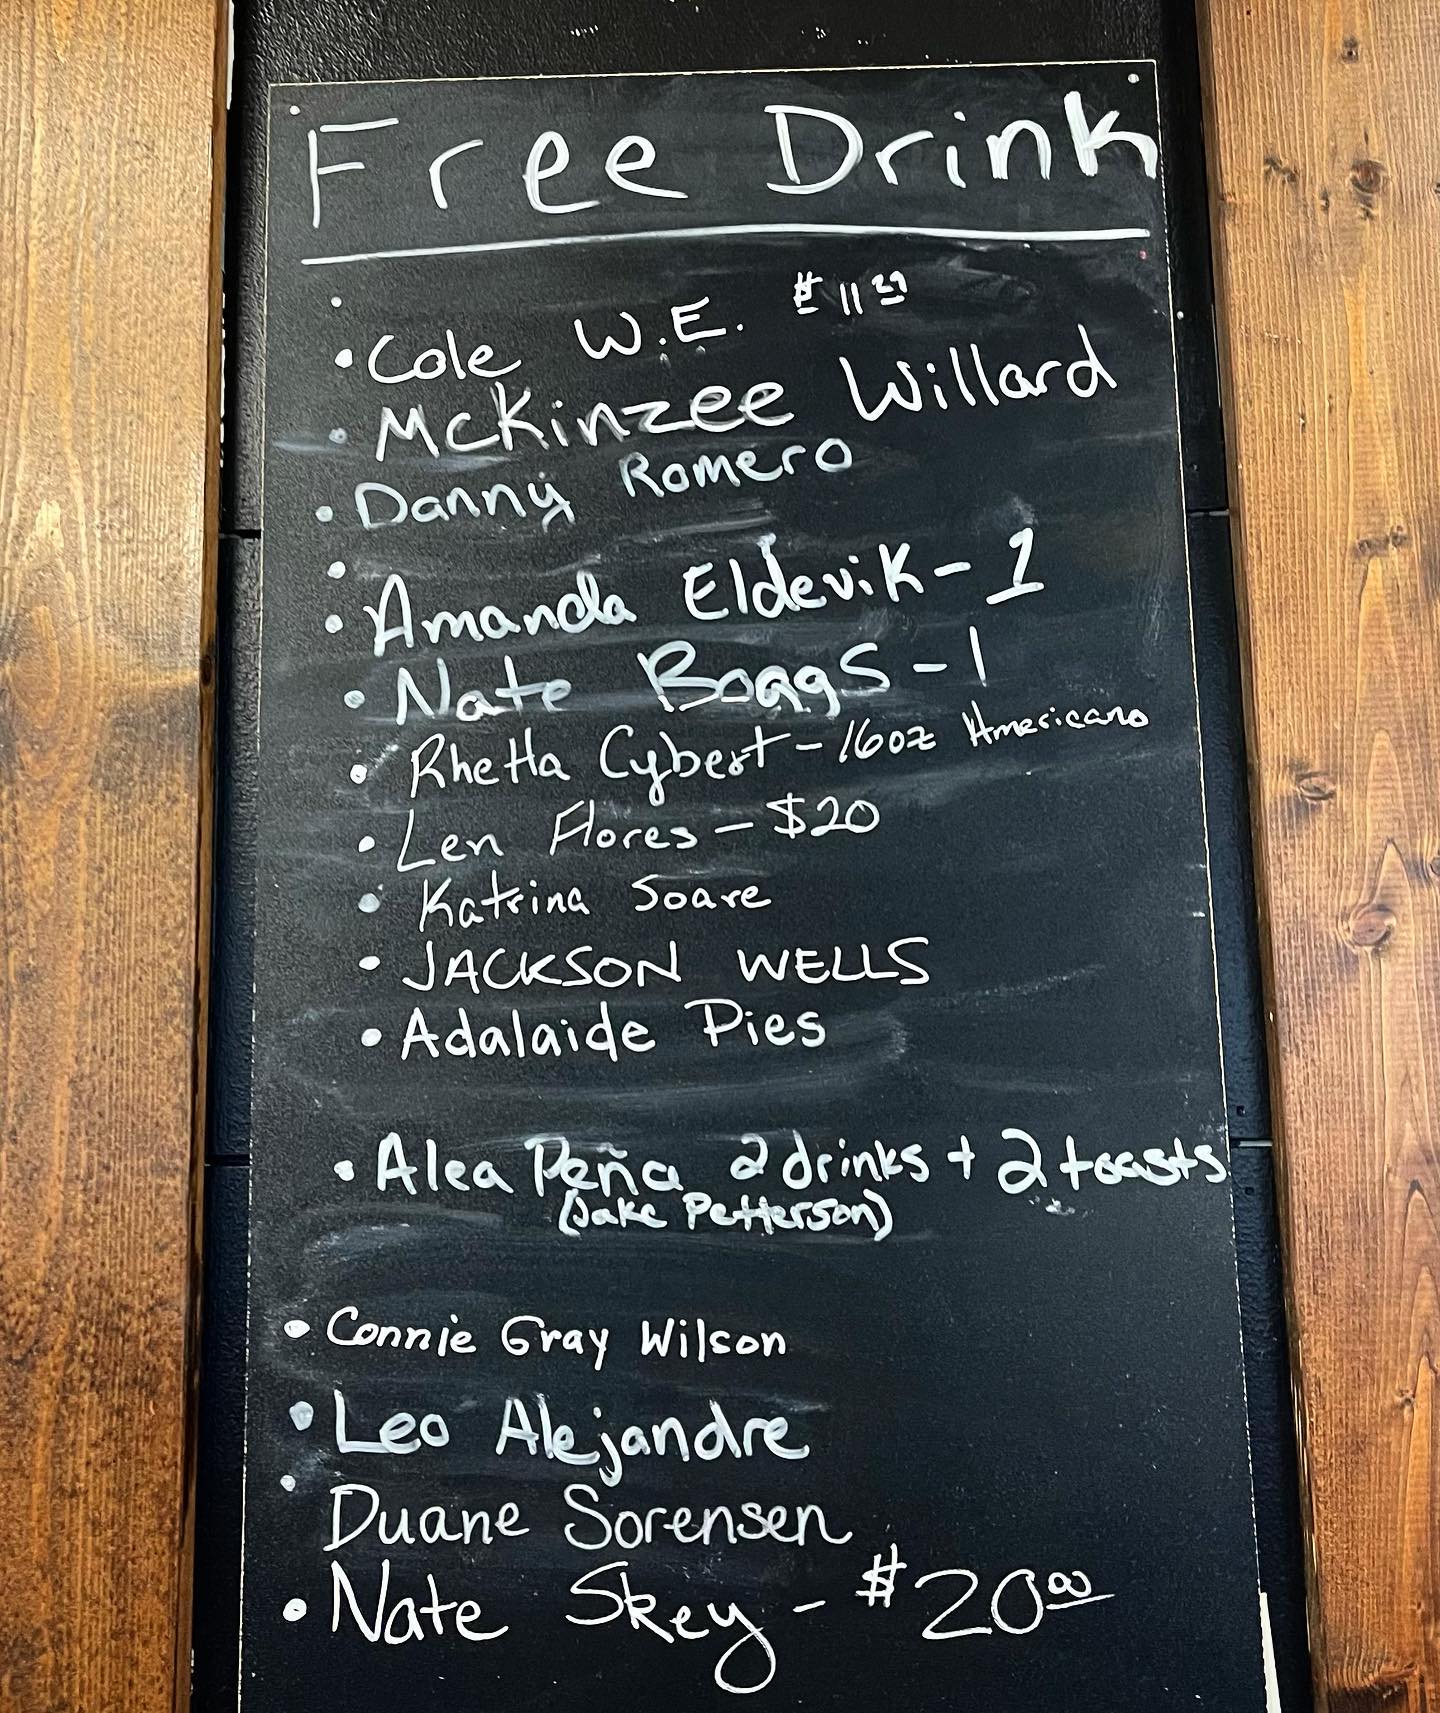 Free Drink
• Cole W.E. $11.29
• McKinzee Willard
• Danny Romero
• Amanda Eldevik - 1
• Nate Boggs - 1
• Rhetta Cybert - 16oz Americano
• Len Flores - $20
• Katrina Soare
• JACKSON WELLS
• Adalaide Pies
• Alea Peña 2 drinks + 2 toasts
(Jake Petterson)
• Connie Gray Wilson
• Leo Alejandre
• Duane Sorensen
• Nate Skey - $20.00